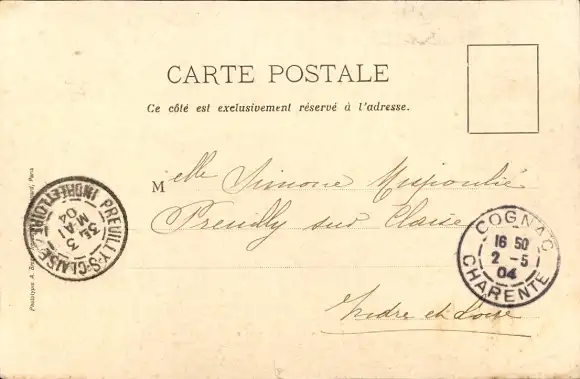 CARTE POSTALE
Ce côté est exclusivement réservé à l'adresse.
Melle Simone
Preuilly sur Claise
Indre et Loire
PREUILLY-S-CLAISE
INDRE-ET-LOIRE
3E
3
MAI
04
COGNAC
16 50
2 - 5
04
CHARENTE
Phototypie A.
Paris